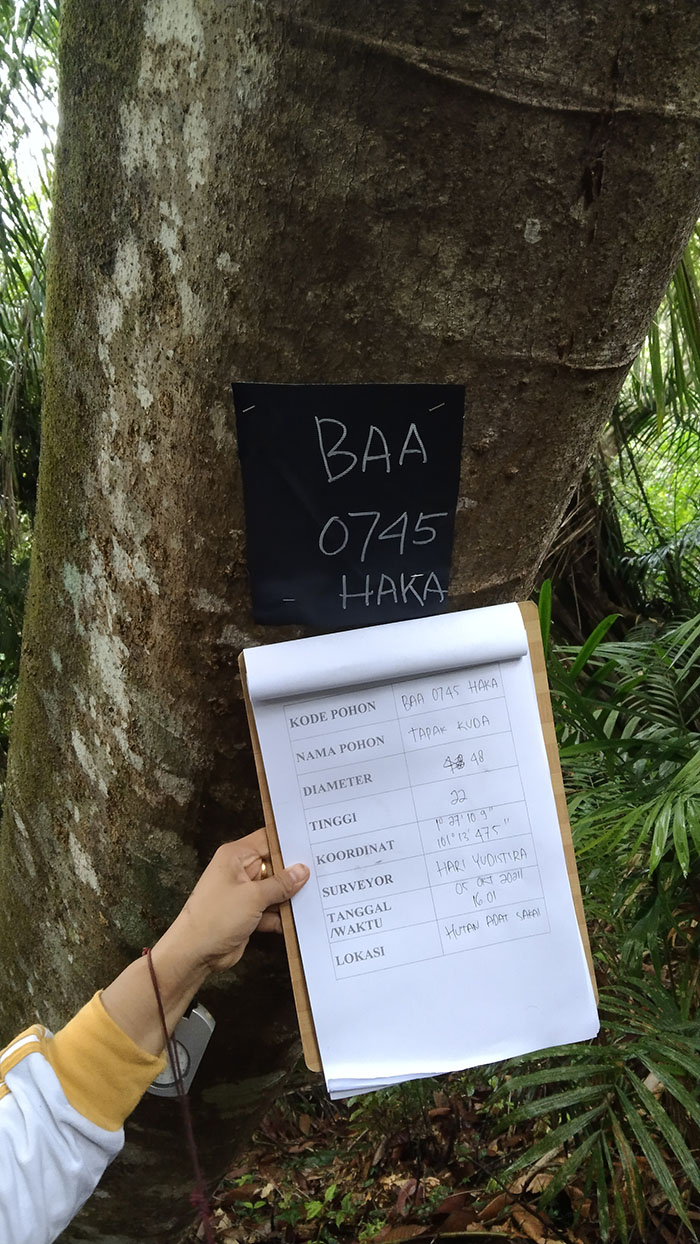 BAA
0745
HAKA
KODE POHON BAA 0745 HAKA
NAMA POHON TAPAK KUDA
DIAMETER 48
TINGGI 22
KOORDINAT 1° 27' 10.9"
101° 13' 47.5"
SURVEYOR HARI YUDISTIRA
TANGGAL 05 OKT
/WAKTU 16.01
LOKASI HUTAN ADAT SAKAI